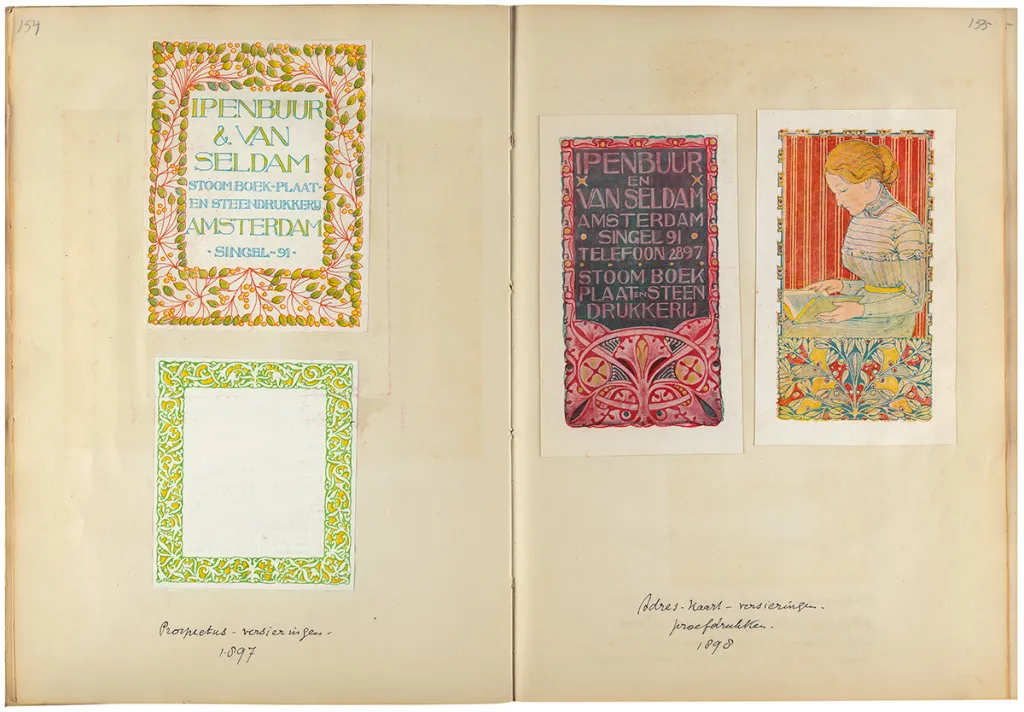 159
IPENBUUR
& VAN
SELDAM
STOOM BOEK-PLAAT-
EN STEENDRUKKERIJ
AMSTERDAM
· SINGEL-91 ·
Prospectus - versieringen -
1897
155
IPENBUUR
EN
VAN SELDAM
AMSTERDAM
SINGEL 91
TELEFOON 2897
STOOM BOEK
PLAAT EN STEEN
DRUKKERIJ
Adres-Kaart - versieringen -
proefdrukken.
1898